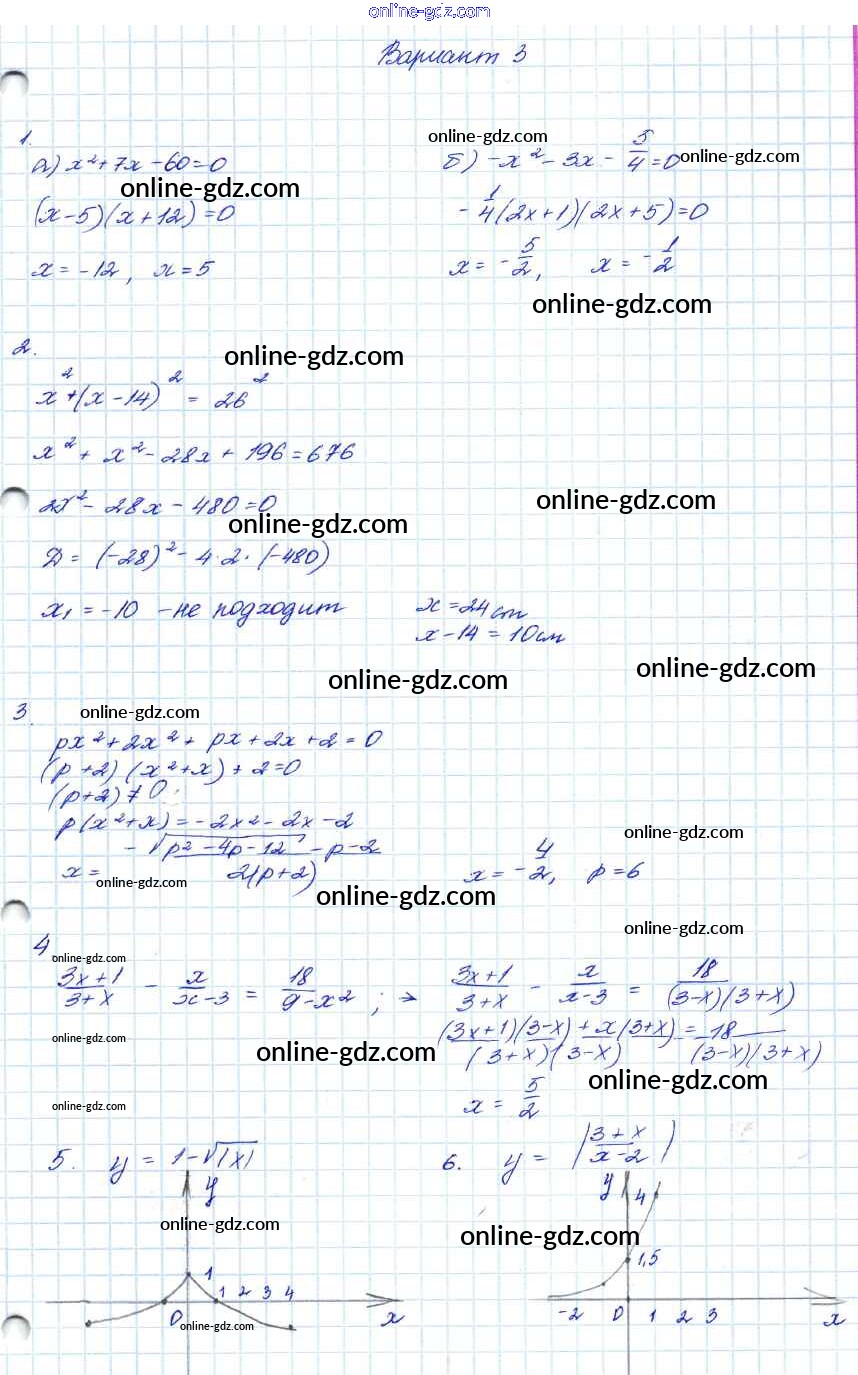 online-gdz.com
Вариант 3
1.
online-gdz.com
а) x² + 7x - 60 = 0
б) -x² - 3x - 5/4 = 0
online-gdz.com
online-gdz.com
(x - 5)(x + 12) = 0
-1/4(2x + 1)(2x + 5) = 0
x = -12, x = 5
x = -5/2, x = -1/2
online-gdz.com
2.
online-gdz.com
x² + (x - 14)² = 26²
x² + x² - 28x + 196 = 676
2x² - 28x - 480 = 0
online-gdz.com
online-gdz.com
D = (-28)² - 4·2·(-480)
x₁ = -10 - не подходит
x = 24 cm
x - 14 = 10 см
online-gdz.com
online-gdz.com
3.
online-gdz.com
px² + 2x² + px + 2x + 2 = 0
(p + 2)(x² + x) + 2 = 0
(p + 2) ≠ 0
p(x² + x) = -2x² - 2x - 2
online-gdz.com
x = (-√(p² - 4p - 12) - p - 2) / 2(p + 2)
x = -4/2, p = 6
online-gdz.com
online-gdz.com
online-gdz.com
4
online-gdz.com
(3x + 1)/(3 + x) - x/(x - 3) = 18/(9 - x²) ; →
(3x + 1)/(3 + x) - x/(x - 3) = 18/((3 - x)(3 + x))
online-gdz.com
((3x + 1)(3 - x) + x(3 + x))/((3 + x)(3 - x)) = 18/((3 - x)(3 + x))
online-gdz.com
online-gdz.com
online-gdz.com
x = 5/2
5. y = 1 - √|x|
6. y = |(3 + x)/(x - 2)|
y
y 4
online-gdz.com
online-gdz.com
1
1,5
1 2 3 4
0
x
-2 0 1 2 3
x
online-gdz.com